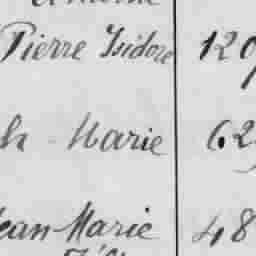 Pierre Isidore 120
h Marie 62
Jean Marie 48